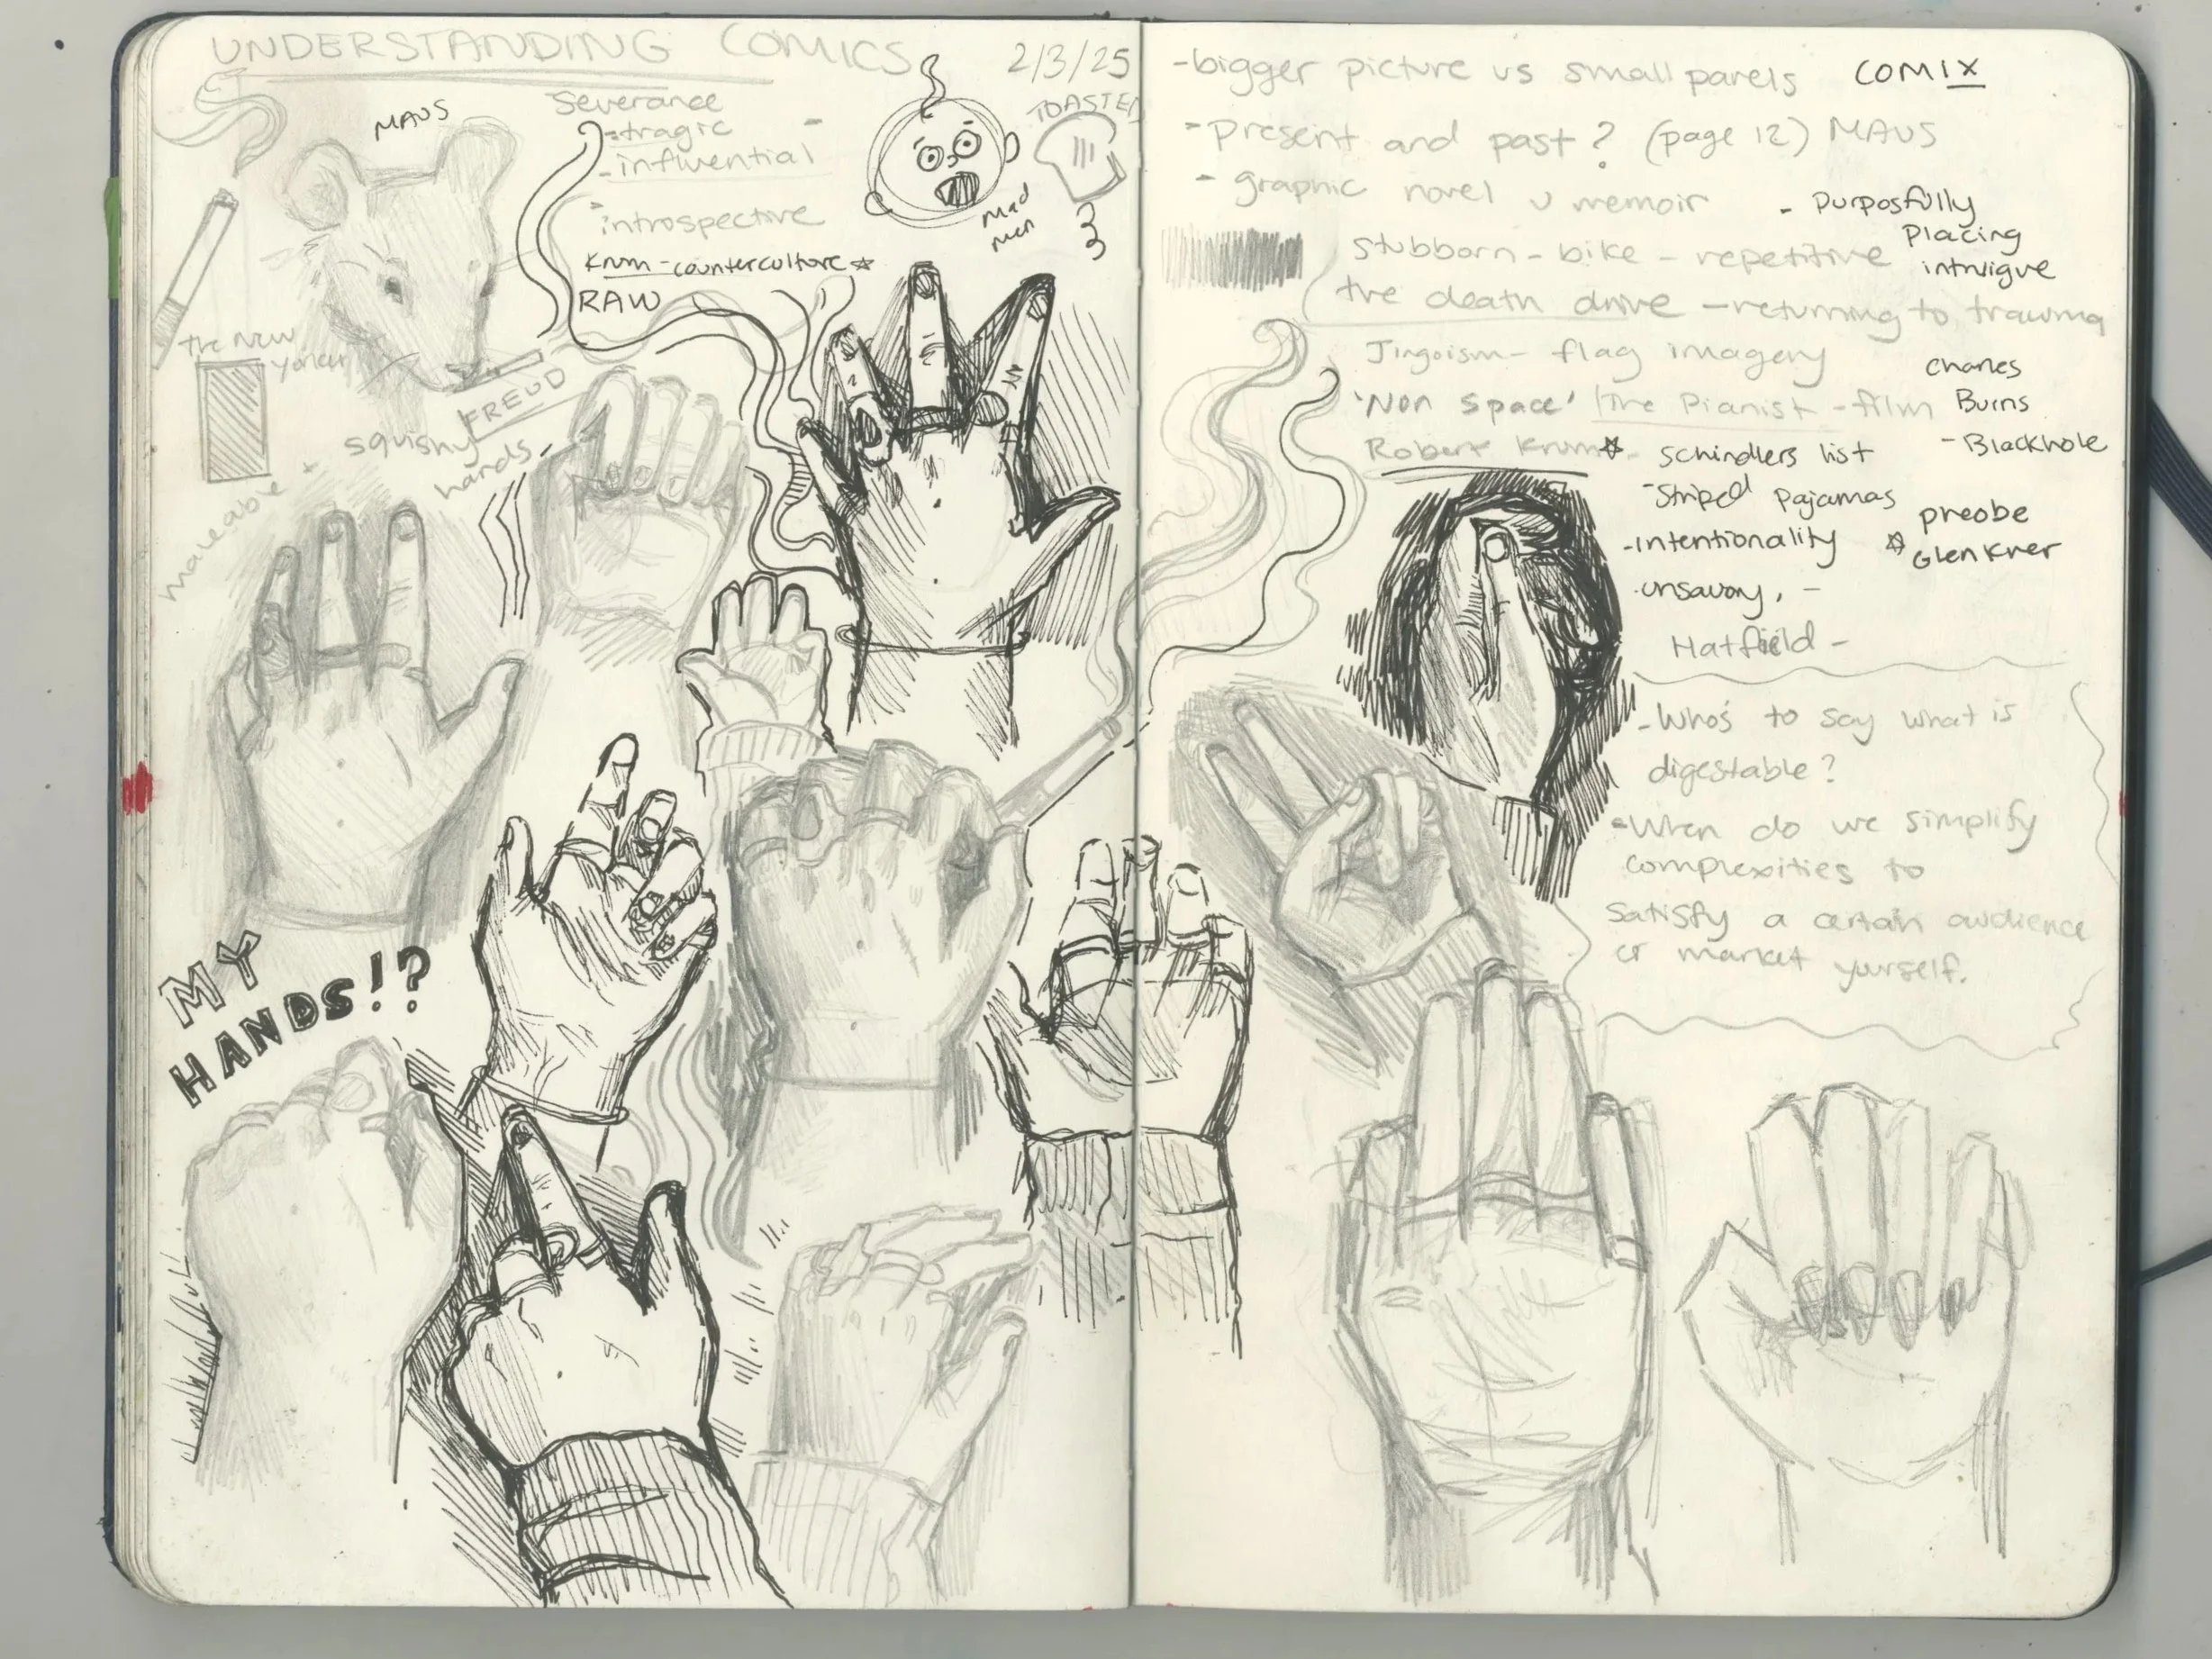 UNDERSTANDING COMICS
2/3/25
MAUS
Severance
-tragic
-influential
introspective
Krum-counterculture
RAW
Mad
Men
TOASTED
The New
Yorker
FREUD
maleable +
squishy
hands
MY
HANDS!?
-bigger picture vs small panels
COMIX
-Present and past? (page 12) MAUS
- graphic novel v memoir
- Purposfully
Placing
intruigue
stubborn - bike - repetitive
the death drive - returning to trauma
Jingoism - flag imagery
'Non Space' The Pianist - film
Robert Krum
Charles
Burns
- Blackhole
schindlers list
-striped pajamas
-intentionality
preobe
Glenkner
unsavory, -
Hatfield -
- Who's to say what is
digestable?
-When do we simplify
complexities to
satisfy a certain audience
or market yourself.